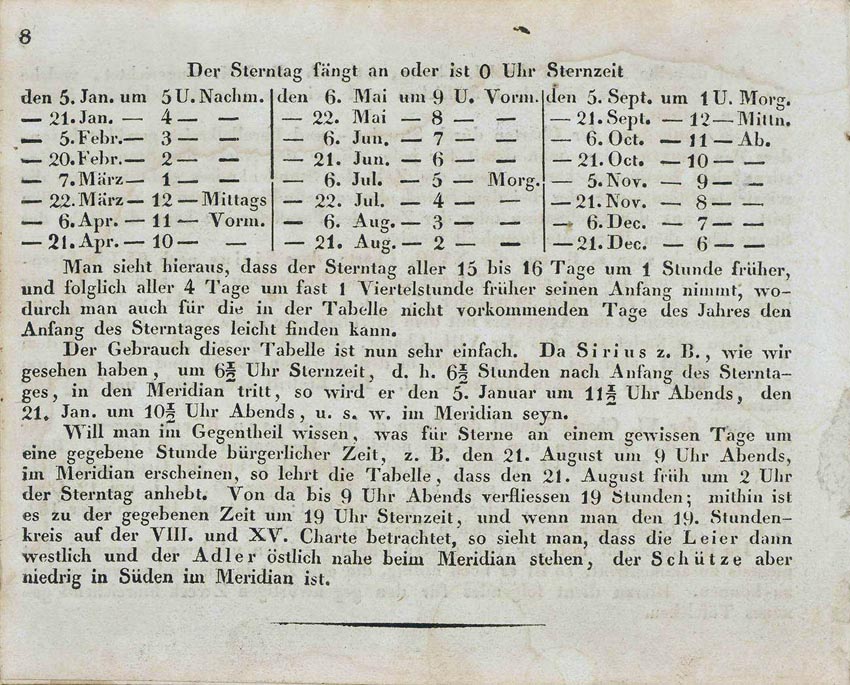 8
Der Sterntag fängt an oder ist 0 Uhr Sternzeit
den 5. Jan. um 5 U. Nachm. den 6. Mai um 9 U. Vorm. den 5. Sept. um 1 U. Morg.
— 21. Jan. — 4 — — — 22. Mai — 8 — — — 21. Sept. — 12 — Mittn.
— 5. Febr. — 3 — — — 6. Jun. — 7 — — — 6. Oct. — 11 — Ab.
— 20. Febr. — 2 — — — 21. Jun. — 6 — — — 21. Oct. — 10 — —
— 7. März — 1 — — — 6. Jul. — 5 — Morg. — 5. Nov. — 9 — —
— 22. März — 12 — Mittags — 22. Jul. — 4 — — — 21. Nov. — 8 — —
— 6. Apr. — 11 — Vorm. — 6. Aug. — 3 — — — 6. Dec. — 7 — —
— 21. Apr. — 10 — — — 21. Aug. — 2 — — — 21. Dec. — 6 — —
Man sieht hieraus, dass der Sterntag aller 15 bis 16 Tage um 1 Stunde früher,
und folglich aller 4 Tage um fast 1 Viertelstunde früher seinen Anfang nimmt, wo-
durch man auch für die in der Tabelle nicht vorkommenden Tage des Jahres den
Anfang des Sterntages leicht finden kann.
Der Gebrauch dieser Tabelle ist nun sehr einfach. Da Sirius z. B., wie wir
gesehen haben, um 6½ Uhr Sternzeit, d. h. 6½ Stunden nach Anfang des Sternta-
ges, in den Meridian tritt, so wird er den 5. Januar um 11½ Uhr Abends, den
21. Jan. um 10½ Uhr Abends, u. s. w. im Meridian seyn.
Will man im Gegentheil wissen, was für Sterne an einem gewissen Tage um
eine gegebene Stunde bürgerlicher Zeit, z. B. den 21. August um 9 Uhr Abends,
im Meridian erscheinen, so lehrt die Tabelle, dass den 21. August früh um 2 Uhr
der Sterntag anhebt. Von da bis 9 Uhr Abends verfliessen 19 Stunden; mithin ist
es zu der gegebenen Zeit um 19 Uhr Sternzeit, und wenn man den 19. Stunden-
kreis auf der VIII. und XV. Charte betrachtet, so sieht man, dass die Leier dann
westlich und der Adler östlich nahe beim Meridian stehen, der Schütze aber
niedrig in Süden im Meridian ist.